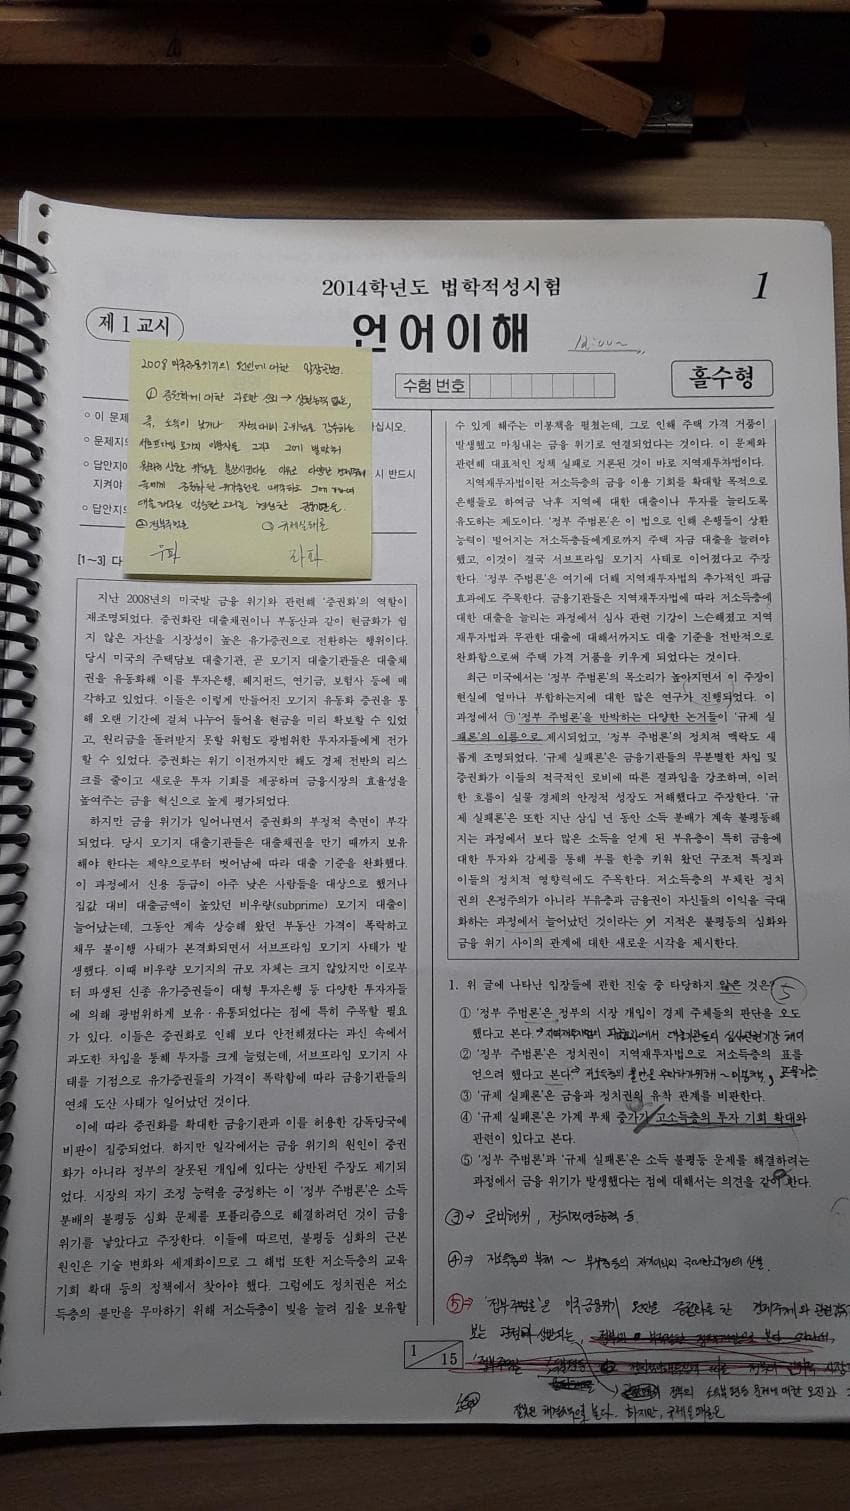 2014학년도 법학적성시험
1
제 1 교시
언어이해
홀수형
수험 번호
2008 미국금융위기의 원인에 대한
① 증권화에 대한 과도한 신뢰 →
즉, 소득이 낮거나
서브프라임 모기지
② 정부주범론 ③ 규제실패론
우파 좌파
○ 이 문제
○ 문제지의
○ 답안지에
지켜야
○ 답안지
십시오.
시 반드시
[1~3] 다
지난 2008년의 미국발 금융 위기와 관련해 ‘증권화’의 역할이
재조명되었다. 증권화란 대출채권이나 부동산과 같이 현금화가 쉽
지 않은 자산을 시장성이 높은 유가증권으로 전환하는 행위이다.
당시 미국의 주택담보 대출기관, 곧 모기지 대출기관들은 대출채
권을 유동화해 이를 투자은행, 헤지펀드, 연기금, 보험사 등에 매
각하고 있었다. 이들은 이렇게 만들어진 모기지 유동화 증권을 통
해 오랜 기간에 걸쳐 나누어 들어올 현금을 미리 확보할 수 있었
고, 원리금을 돌려받지 못할 위험도 광범위한 투자자들에게 전가
할 수 있었다. 증권화는 위기 이전까지만 해도 경제 전반의 리스
크를 줄이고 새로운 투자 기회를 제공하며 금융시장의 효율성을
높여주는 금융 혁신으로 높게 평가되었다.
하지만 금융 위기가 일어나면서 증권화의 부정적 측면이 부각
되었다. 당시 모기지 대출기관들은 대출채권을 만기 때까지 보유
해야 한다는 제약으로부터 벗어남에 따라 대출 기준을 완화했다.
이 과정에서 신용 등급이 아주 낮은 사람들을 대상으로 했거나
집값 대비 대출금액이 높았던 비우량(subprime) 모기지 대출이
늘어났는데, 그동안 계속 상승해 왔던 부동산 가격이 폭락하고
채무 불이행 사태가 본격화되면서 서브프라임 모기지 사태가 발
생했다. 이때 비우량 모기지의 규모 자체는 크지 않았지만 이로부
터 파생된 신종 유가증권들이 대형 투자은행 등 다양한 투자자들
에 의해 광범위하게 보유·유통되었다는 점에 특히 주목할 필요
가 있다. 이들은 증권화로 인해 보다 안전해졌다는 과신 속에서
과도한 차입을 통해 투자를 크게 늘렸는데, 서브프라임 모기지 사
태를 기점으로 유가증권들의 가격이 폭락함에 따라 금융기관들의
연쇄 도산 사태가 일어났던 것이다.
이에 따라 증권화를 확대한 금융기관과 이를 허용한 감독당국에
비판이 집중되었다. 하지만 일각에서는 금융 위기의 원인이 증권
화가 아니라 정부의 잘못된 개입에 있다는 상반된 주장도 제기되
었다. 시장의 자기 조정 능력을 긍정하는 이 ‘정부 주범론’은 소득
분배의 불평등 심화 문제를 포퓰리즘으로 해결하려던 것이 금융
위기를 낳았다고 주장한다. 이들에 따르면, 불평등 심화의 근본
원인은 기술 변화와 세계화이므로 그 해법 또한 저소득층의 교육
기회 확대 등의 정책에서 찾아야 했다. 그럼에도 정치권은 저소
득층의 불만을 무마하기 위해 저소득층이 빚을 늘려 집을 보유할
수 있게 해주는 미봉책을 펼쳤는데, 그로 인해 주택 가격 거품이
발생했고 마침내는 금융 위기로 연결되었다는 것이다. 이 문제와
관련해 대표적인 정책 실패로 거론된 것이 바로 지역재투자법이다.
지역재투자법이란 저소득층의 금융 이용 기회를 확대할 목적으로
은행들로 하여금 낙후 지역에 대한 대출이나 투자를 늘리도록
유도하는 제도이다. ‘정부 주범론’은 이 법으로 인해 은행들이 상환
능력이 떨어지는 저소득층들에게로까지 주택 자금 대출을 늘려야
했고, 이것이 결국 서브프라임 모기지 사태로 이어졌다고 주장
한다. ‘정부 주범론’은 여기에 더해 지역재투자법의 추가적인 파급
효과에도 주목한다. 금융기관들은 지역재투자법에 따라 저소득층에
대한 대출을 늘리는 과정에서 심사 관련 기강이 느슨해졌고 지역
재투자법과 무관한 대출에 대해서까지도 대출 기준을 전반적으로
완화함으로써 주택 가격 거품을 키우게 되었다는 것이다.
최근 미국에서는 ‘정부 주범론’의 목소리가 높아지면서 이 주장이
현실에 얼마나 부합하는지에 대한 많은 연구가 진행되었다. 이
과정에서 ㉠‘정부 주범론’을 반박하는 다양한 논거들이 ‘규제 실
패론’의 이름으로 제시되었고, ‘정부 주범론’의 정치적 맥락도 새
롭게 조명되었다. ‘규제 실패론’은 금융기관들의 무분별한 차입 및
증권화가 이들의 적극적인 로비에 따른 결과임을 강조하며, 이러
한 흐름이 실물 경제의 안정적 성장도 저해했다고 주장한다. ‘규
제 실패론’은 또한 지난 삼십 년 동안 소득 분배가 계속 불평등해
지는 과정에서 보다 많은 소득을 얻게 된 부유층이 특히 금융에
대한 투자와 감세를 통해 부를 한층 키워 왔던 구조적 특징과
이들의 정치적 영향력에도 주목한다. 저소득층의 부채란 정치
권의 온정주의가 아니라 부유층과 금융권이 자신들의 이익을 극대
화하는 과정에서 늘어났던 것이라는 이 지적은 불평등의 심화와
금융 위기 사이의 관계에 대한 새로운 시각을 제시한다.
1. 위 글에 나타난 입장들에 관한 진술 중 타당하지 않은 것은? 5
① ‘정부 주범론’은 정부의 시장 개입이 경제 주체들의 판단을 오도
했다고 본다.
② ‘정부 주범론’은 정치권이 지역재투자법으로 저소득층의 표를
얻으려 했다고 본다.
③ ‘규제 실패론’은 금융과 정치권의 유착 관계를 비판한다.
④ ‘규제 실패론’은 가계 부채 증가가 고소득층의 투자 기회 확대와
관련이 있다고 본다.
⑤ ‘정부 주범론’과 ‘규제 실패론’은 소득 불평등 문제를 해결하려는
과정에서 금융 위기가 발생했다는 점에 대해서는 의견을 같이 한다.
③ → 로비행위, 정치적영향력 등
④ → 저소득층의 부채 ~
⑤ → '정부주범론'은 미국금융위기 원인을
1
15